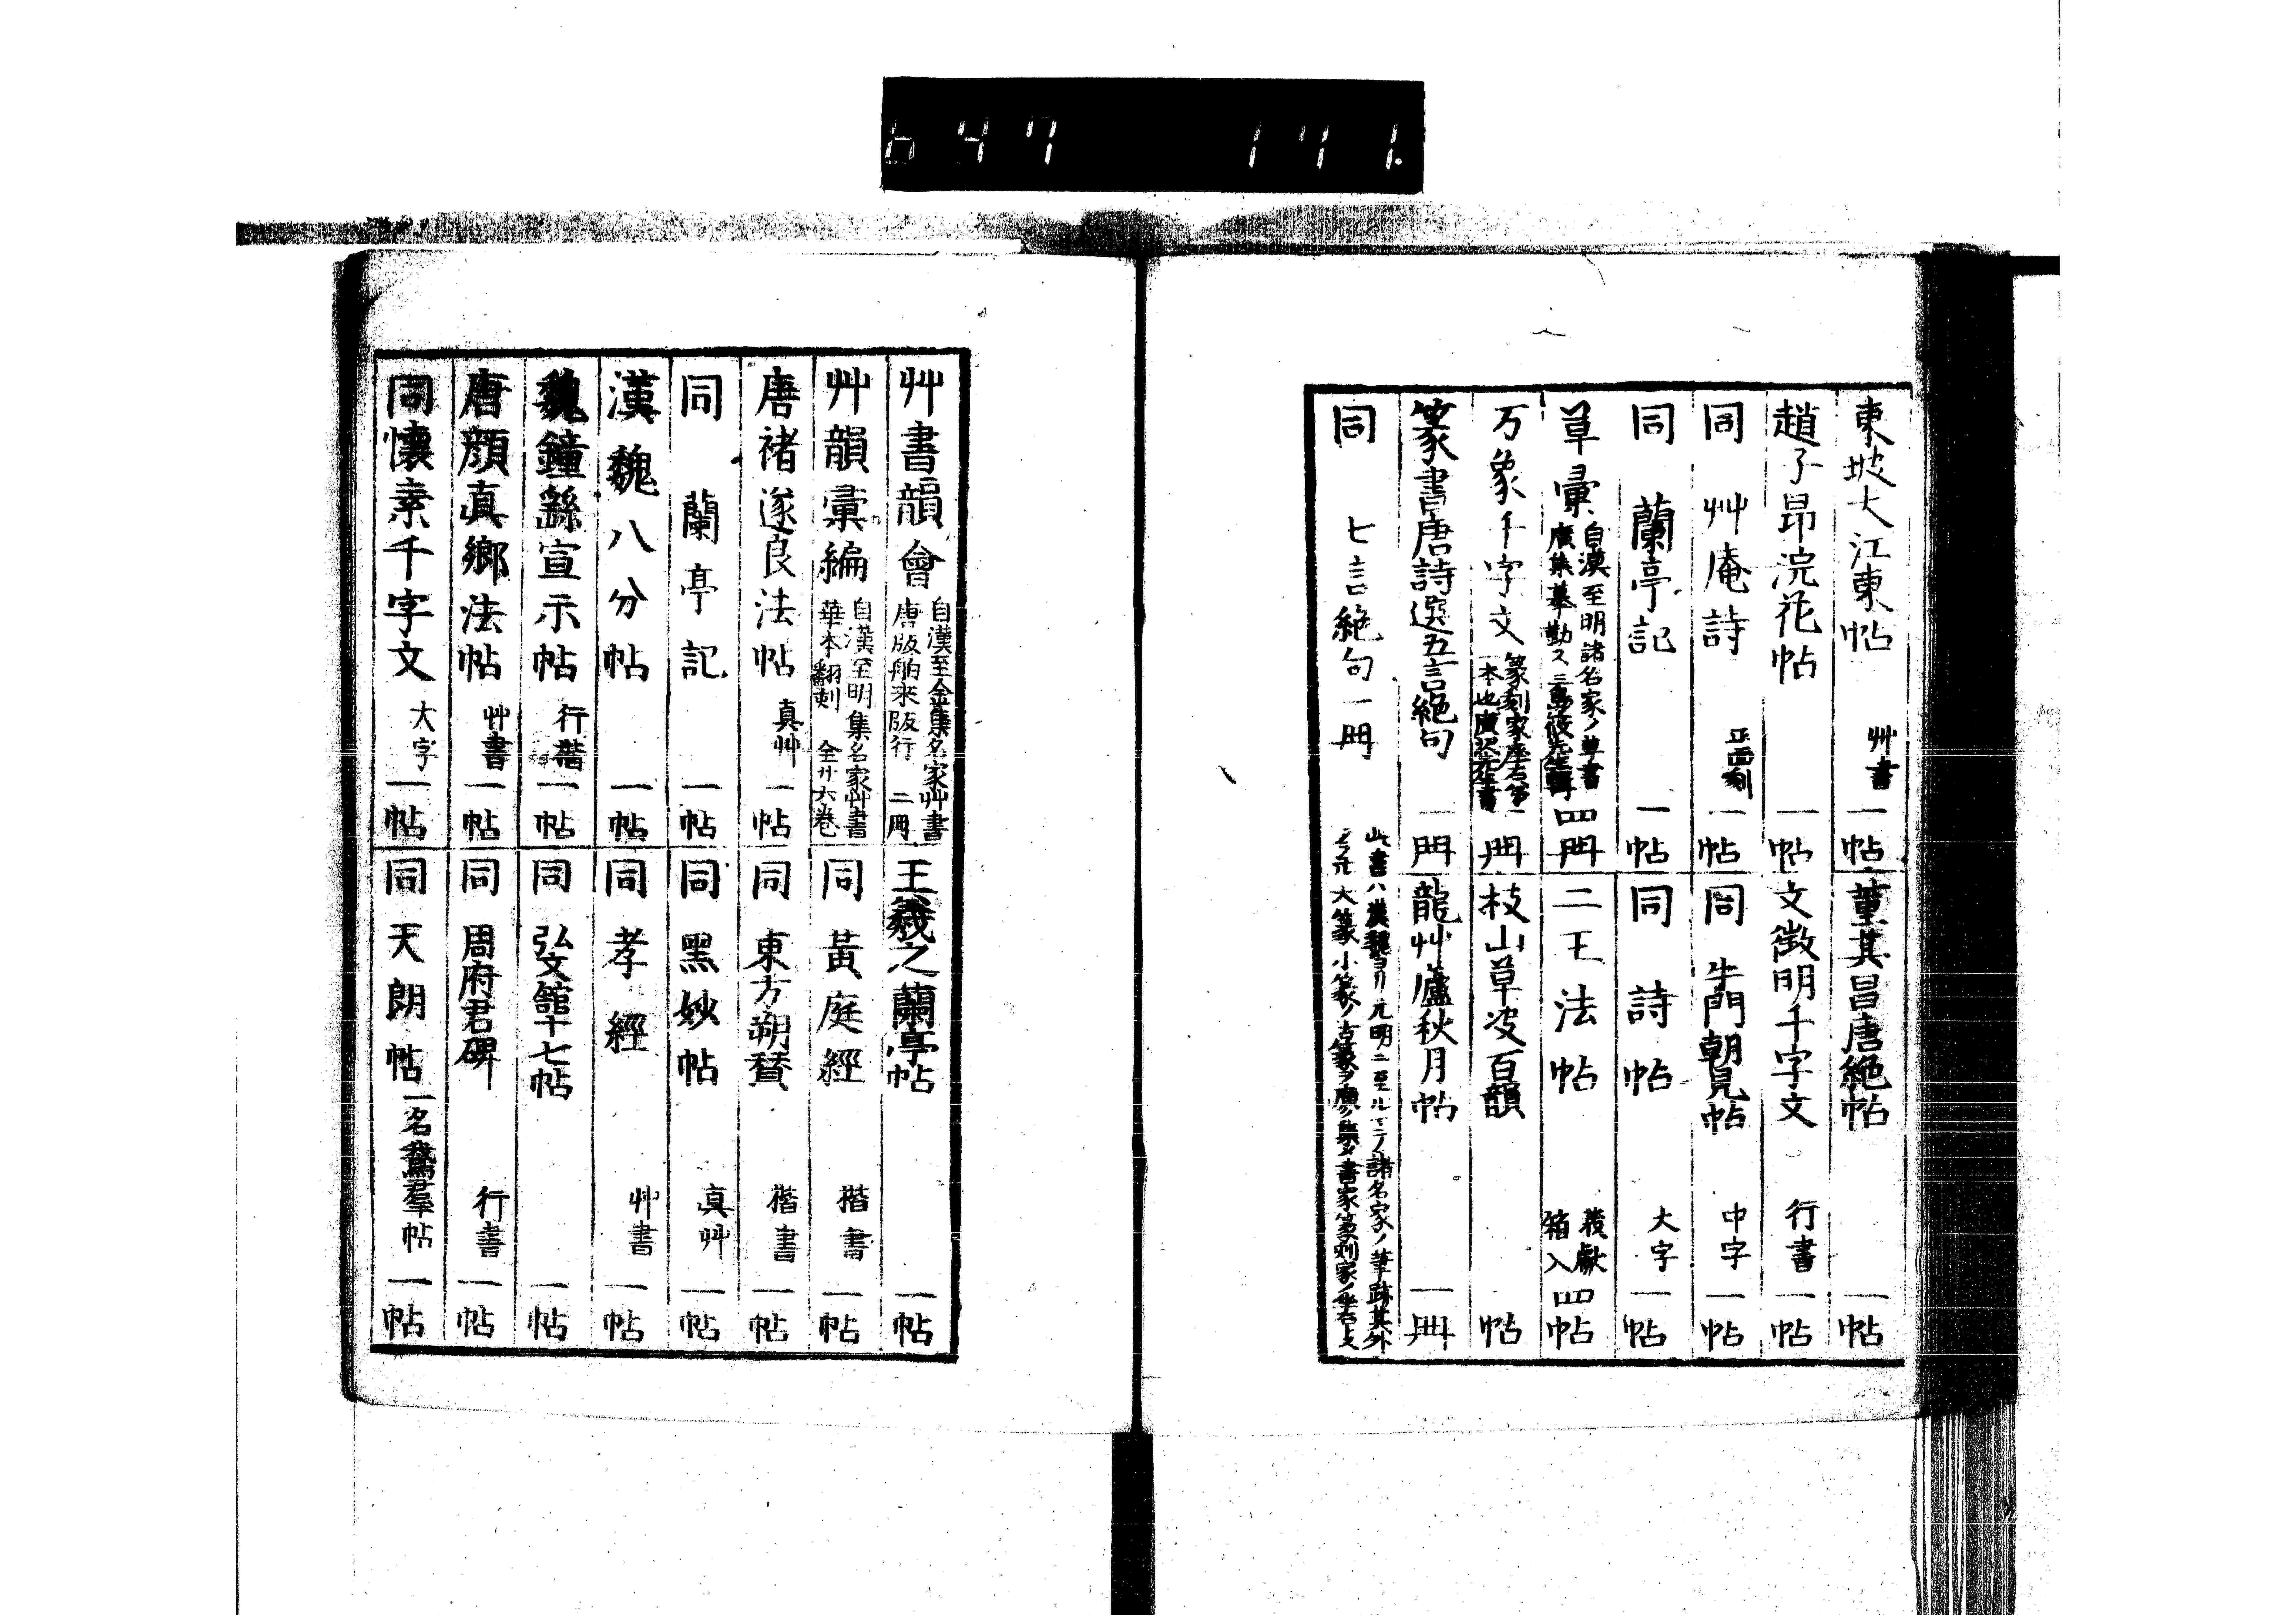 647 171.
東坡大江東帖 艸書 一帖
趙子昂浣花帖 一帖
同 艸庵詩 正面刻 一帖
同 蘭亭記 一帖
草彙 自漢至明諸名家ノ草書 廣集摹勒ス 四冊
万象千字文 篆刻家座右第一 本也 一冊
篆書唐詩選五言絕句 一冊
同 七言絕句 一冊
董其昌唐絕帖 一帖
文徵明千字文 行書 一帖
同 朝見帖 中字 一帖
同 詩帖 大字 一帖
二王法帖 羲獻 箱入 四帖
枝山草故百韻 帖
龍艸廬秋月帖 一冊
此書ハ漢魏ヨリ元明ニ至ルマテノ諸名家ノ筆跡其外
大篆小篆ノ古篆ヲ廣ク集タ書家篆刻家ノ
艸書韻會 自漢至金集名家艸書 唐版舶来版行 二冊
艸韻彙編 自漢至明集名家艸書 華本翻刻 全廿六巻
唐褚遂良法帖 真艸 一帖
同 蘭亭記 一帖
漢魏八分帖 一帖
魏鐘繇宣示帖 行楷 一帖
唐顔真鄉法帖 艸書 一帖
同懷素千字文 大字 一帖
王羲之蘭亭帖 一帖
同 黃庭經 楷書 一帖
同 東方朔賛 楷書 一帖
同 黑妙帖 真艸 一帖
同 孝經 艸書 一帖
同 弘文舘十七帖 一帖
同 周府君碑 行書 一帖
同 天朗帖 一名鵞羣帖 一帖